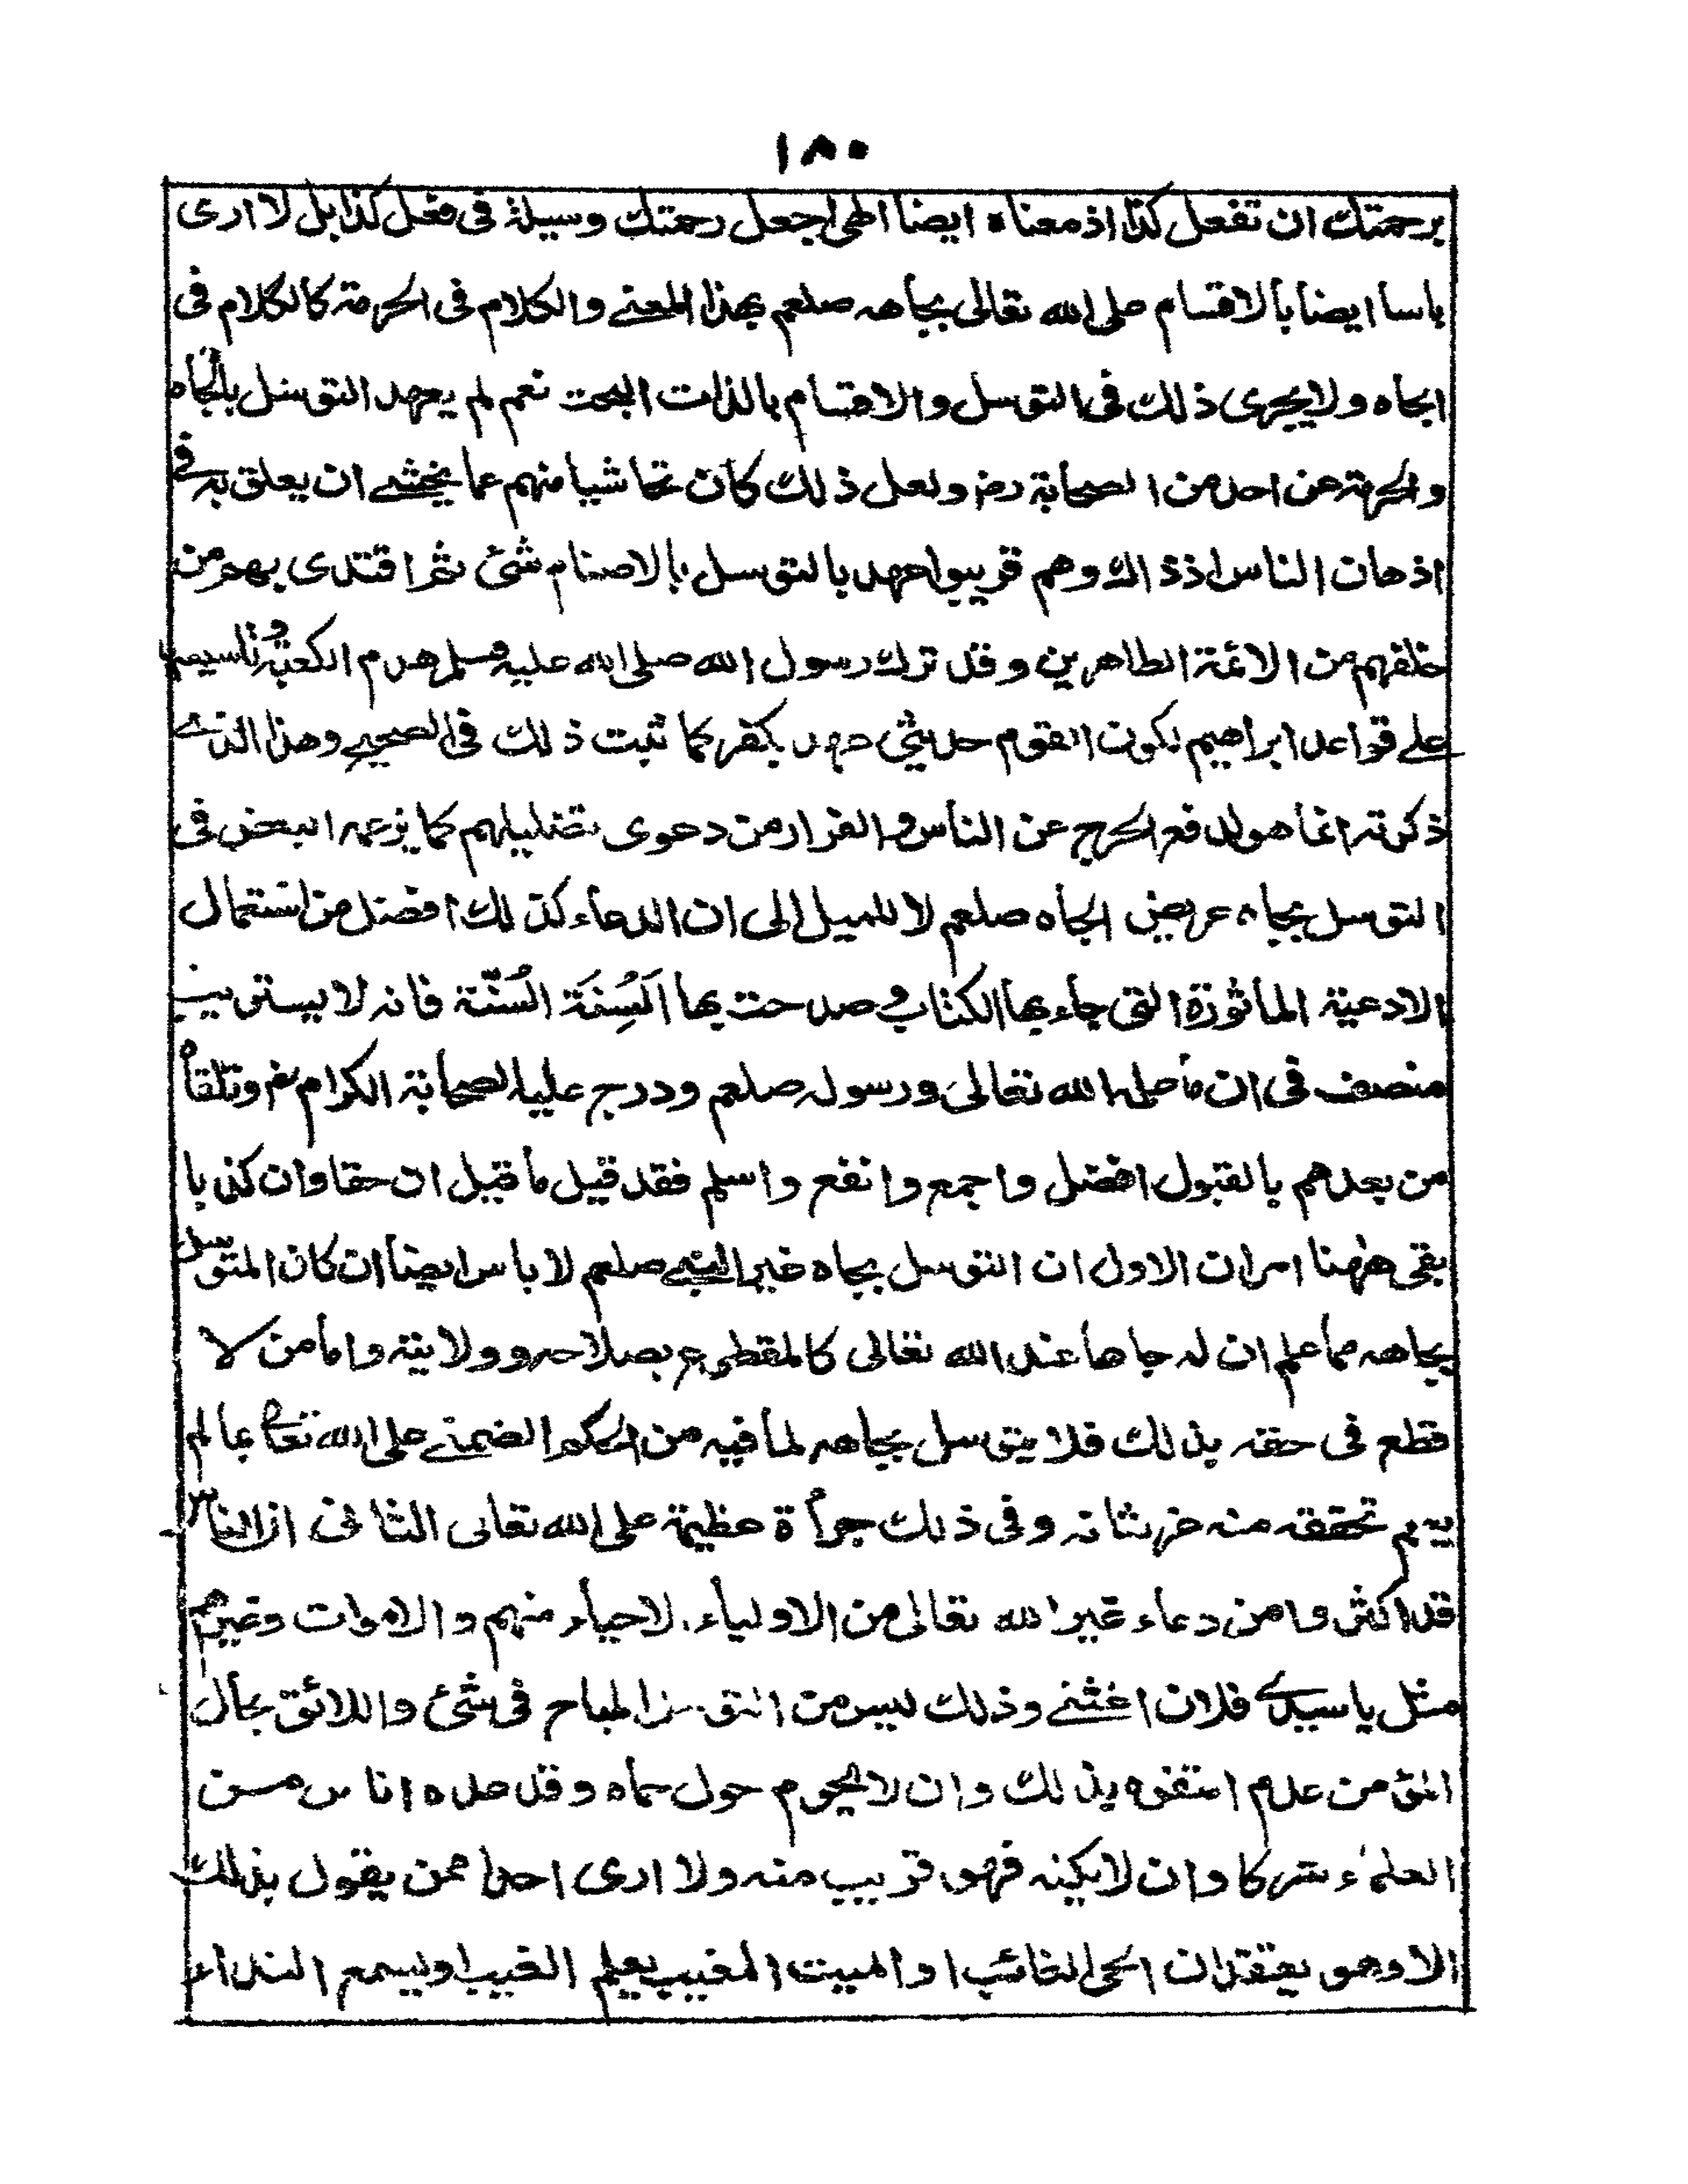 ١٨٠
برحمتك ان تفعل كذا اذ معناه ايضا الهى اجعل رحمتك وسيلة فى فعل كذا بل لا ارى
باسا ايضا بالاقسام على الله تعالى بجاهه صلعم بهذا المعنے والكلام فى الحرمة كالكلام فى
الجاه ولا يجرى ذلك فى التوسل والاقسام بالذات البحت نعم لم يعهد التوسل بالجاه
والحرمة عن احد من الصحابة رض ولعل ذلك كان تحاشيا منهم عما يخشے ان يعلق به فے
اذهان الناس اذ ذاك وهم قريبوا عهد بالتوسل بالاصنام شئ ثم اقتدى بهم من
خلفهم من الائمة الطاهرين وقد ترك رسول الله صلى الله عليه وسلم هدم الكعبة وتاسيسها
علے قواعد ابراهيم لكون القوم حديثى عهد بكفر كما ثبت ذلك فى الصحيح وهذا الذے
ذكرته انما هو لدفع الحرج عن الناس و الفرار من دعوى تضليلهم كما يزعمه البعض فى
التوسل بجاه عريض الجاه صلعم لا للميل الى ان الدعاء كذلك افضل من استعمال
الادعية الماثورة التى جاء بها الكتاب و صدحت بها اَلْسِنَة السُّنّة فانه لا يستريب
منصف فى ان ما علمه الله تعالى ورسوله صلعم ودرج عليه الصحابة الكرام رض وتلقاه
من بعدهم بالقبول افضل واجمع وانفع واسلم فقد قيل ما قيل ان حقا وان كذبا
بقى هٰهنا امران الاول ان التوسل بجاه غير النبے صلعم لا باس ايضا ان كان المتوسل
بجاهه مما علم ان له جاها عند الله تعالى كالمقطوع بصلاحه وولايته واما من لا
قطع فى حقه بذلك فلا يتوسل بجاهه لما فيه من الحكم الضمنے على الله تعالى بما لم
يعلم تحققه منه عز شانه وفى ذلك جرأة عظيمة على الله تعالى الثانى ان الناس
قد اكثروا من دعاء غير الله تعالى من الاولياء الاحياء منهم و الاموات وغيرهم
مثل يا سيدے فلان اغثنے وذلك ليس من التوسل المباح فى شئ واللائق بحال
المؤمن عدم التفوه بذلك وان لا يحوم حول حماه وقد عده اناس من
العلماء شركا وان لا يكنه فهو قريب منه ولا ارى احدا ممن يقول بذلك
الا وهو يعتقد ان الحى الغائب او الميت المغيب يعلم الغيب او يسمع النداء